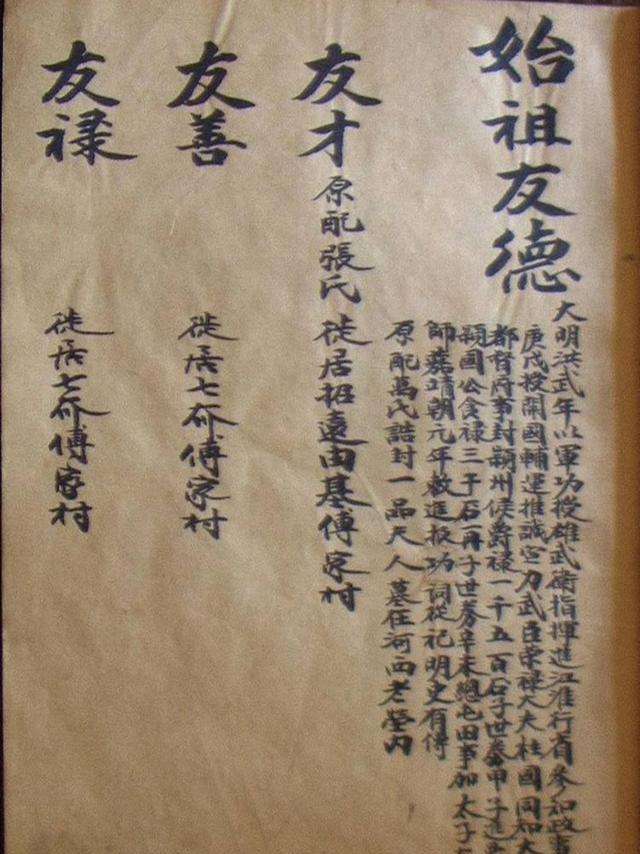 始祖友德
大明洪武年以軍功授雄武衛指揮進江淮行省參知政事
庚戌授開國輔運推誠宣力武臣榮祿大夫柱國同知大
都督府事封潁州侯爵祿一千五百石子世券甲子進
潁國公食祿三千石再子世券辛未總屯田事加太子
師嘉靖朝元年敕進报功祠從祀明史有傳
原配萬氏誥封一品夫人墓在河西老塋內
友才 原配張氏 徙居招遠由基傅家村
友善 徙居七尒傅家村
友祿 徙居七尒傅家村